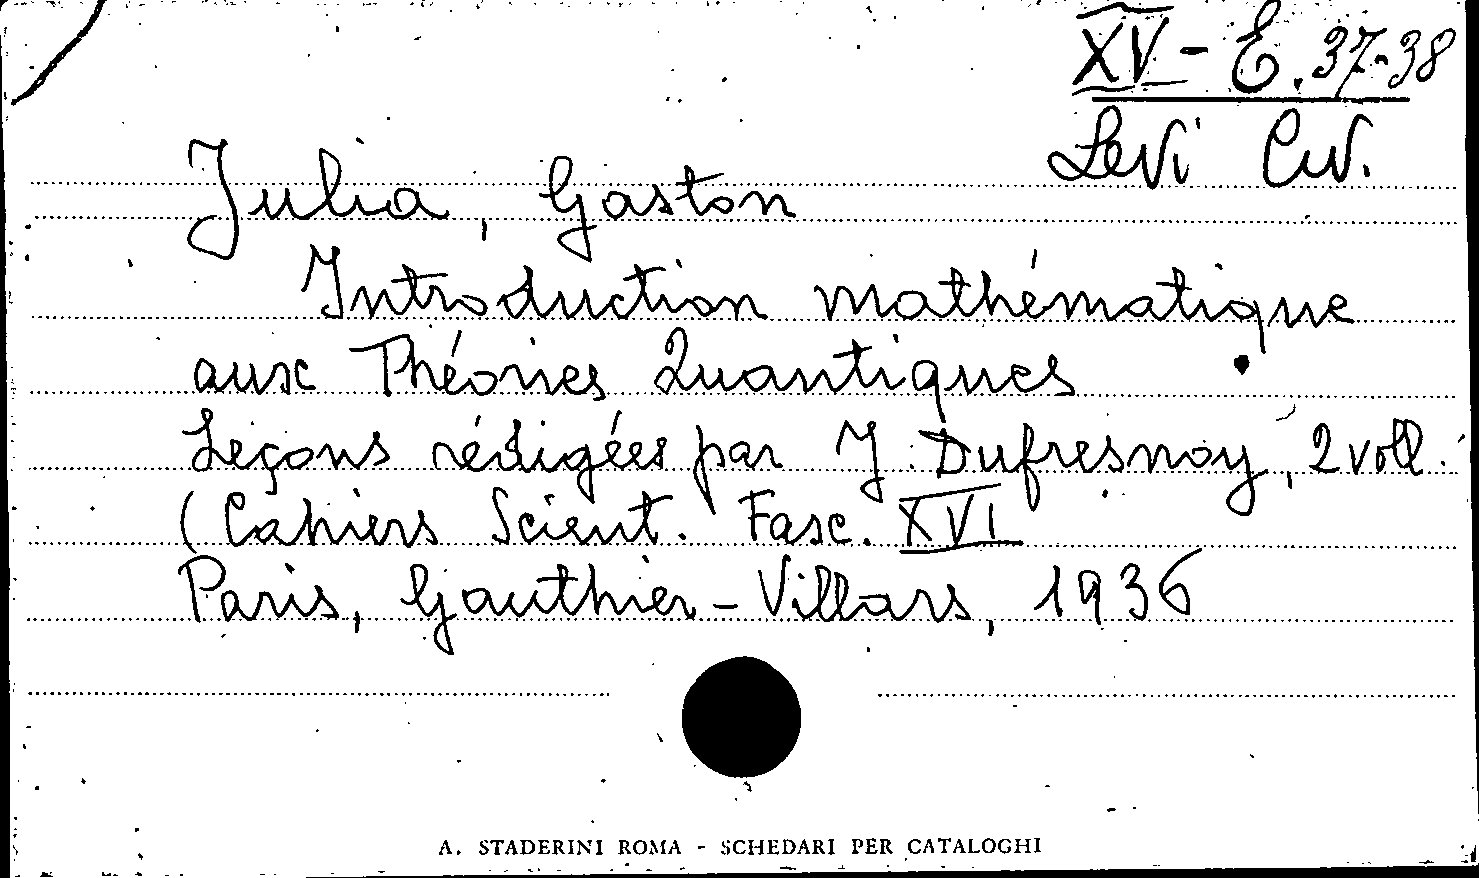 XV - E. 37-38
Levi Civ.
Julia, Gaston
Introduction mathématique
aux Théories Quantiques
Leçons rédigées par J. Dufresnoy, 2 voll.
(Cahiers Scient. Fasc. XVI
Paris, Gauthier-Villars, 1936
A. STADERINI ROMA - SCHEDARI PER CATALOGHI